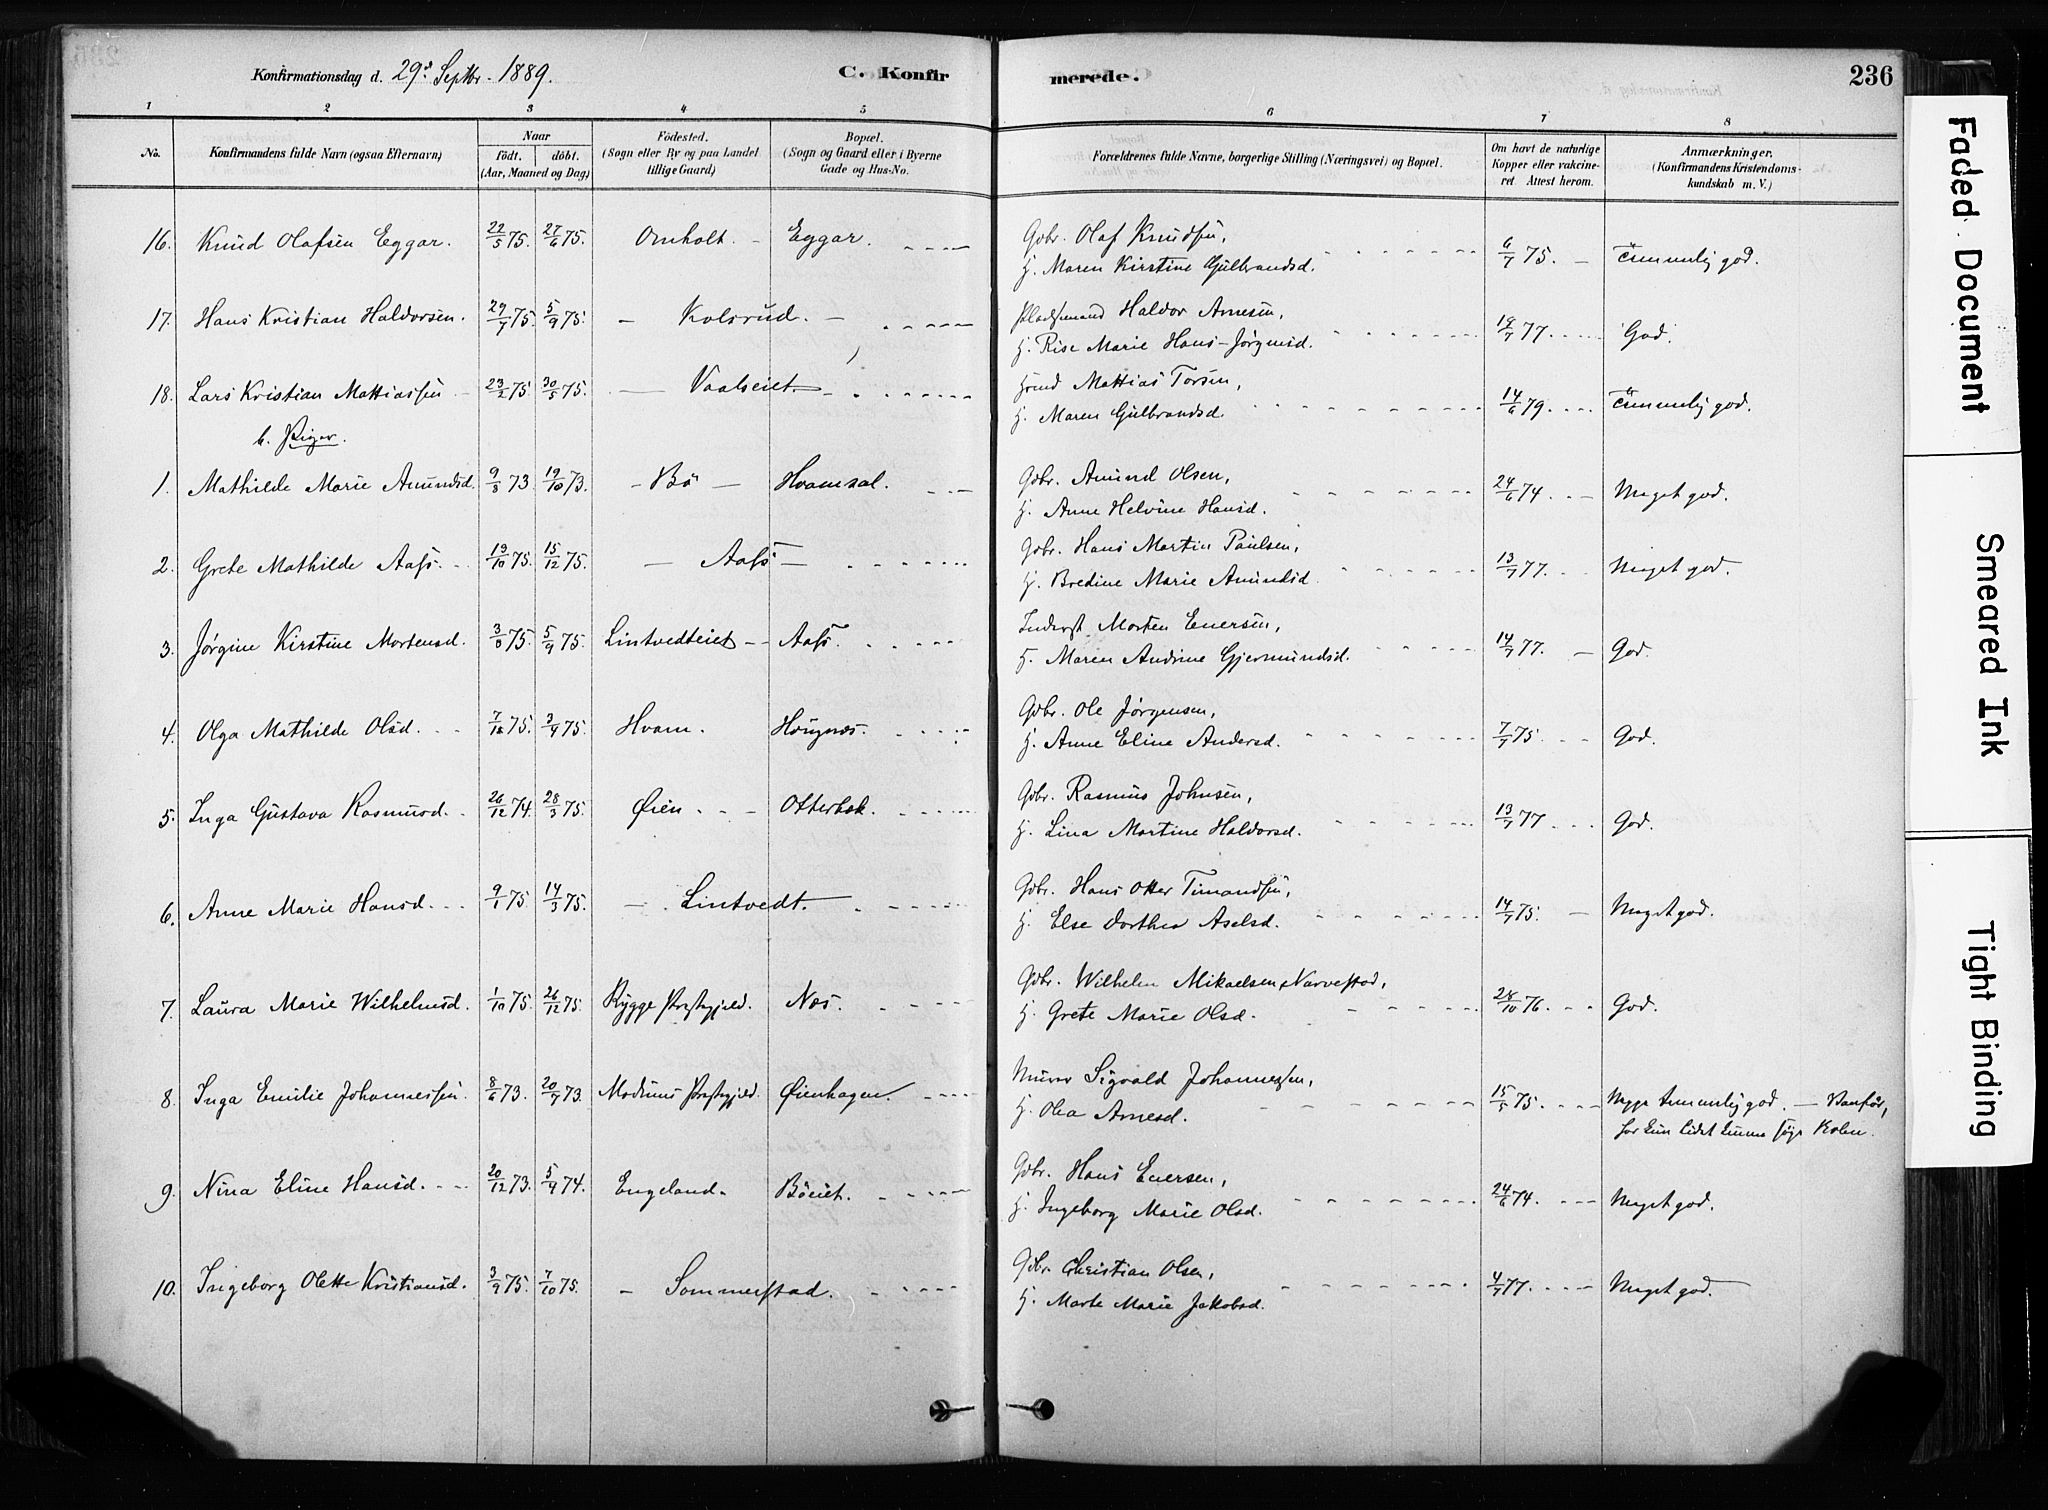 Konfirmationsdag d. 29d Septbr. 1889.
C. Konfir merede.
236
1 2 3 4 5 6 7 8
No.
Konfirmandens fulde Navn (ogsaa Efternavn)
Naar
födt. döbt.
(Aar, Maaned og Dag)
Födested.
(Sogn eller By og paa Landet tillige Gaard)
Bopæl.
(Sogn og Gaard eller i Byerne Gade og Hus-No.
Forældrenes fulde Navne, borgerlige Stilling (Næringsvei) og Bopæl.
Om havt de naturlige Kopper eller vakcineret Attest herom.
Anmærkninger,
(Konfirmandens Kristendomskundskab m. V.)
16. Knud Olafsen Eggar. 22/5 75. 27/6 75. Omholt. - Eggar. Gdbr. Olaf Knudsen,
H. Maren Kirstine Gulbrandsd. 6/7 75. - Temmelig god.
17. Hans Kristian Haldorsen. 29/7 75. 5/9 75. - Kolsrud. - Pladsemand Haldor Arnesen,
H. Rise Marie Hans-Jørgensd. 19/7 77. God.
18. Lars Kristian Mattiassen 23/2 75. 30/5 75. - Vaalseiet. - Mattias Torsen,
H. Maren Gulbrandsd. 14/6 79. Temmelig god.
b. Piger.
1. Mathilde Marie Amundsd. 9/8 73. 19/10 73. - Bö - Hvamsal. Gdbr. Amund Olsen,
H. Anne Helvine Hansd. 24/6 74. Meget god.
2. Grete Mathilde Aass. 19/10 75. 15/12 75. - Aass - Gdbr. Hans Martin Paulsen,
H. Bredine Marie Amundsd. 13/7 77. Meget god.
3. Jørgine Kirstine Mortensd. 3/8 75. 5/9 75. Lintvedteiet - Aass. Inderst Morten Enersen,
H. Maren Andrine Gjermundsd. 14/7 77. - God.
4. Olga Mathilde Olsd. 75. 3/9 75. Hvam. Haugnæs. Gdbr. Ole Jørgensen,
H. Anne Eline Andersd. 7/7 75. God.
5. Inga Gustava Rasmusd. 26/12 74. 28/3 75. Øien. Otterbek. Gdbr. Rasmus Johnsen,
H. Lina Martine Haldorsd. 13/7 77. God.
6. Anne Marie Hansd. 9/1 75. 14/3 75. - Lintvedt. Gdbr. Hans Otter Timandsen,
H. Else Dorthea Aselsd. 14/7 75. - Meget god.
7. Laura Marie Wilhelmsd. 1/10 75. 26/12 75. Rygge Præstegjeld. Næs. Gdbr. Wilhelm Mikaelsen Narvestad,
H. Grete Marie Olsd. 28/10 76. God.
8. Inga Emilie Johannessen. 8/6 73. 20/7 73. Modums Præstegjeld. Øienhagen. Murer Sigvald Johannessen,
H. Olea Arnesd. 15/5 75. temmelig god. - Vanför,
har kun lidet kunne søge Skolen.
9. Nina Eline Hansd. 20/12 73. 5/4 74. Engeland. Böeiet. Gdbr. Hans Enersen,
H. Ingeborg Marie Olsd. 24/6 74. Meget god.
10. Ingeborg Olette Kristiansd. 3/9 75. 7/10 75. - Sommerstad. Gdbr. Christian Olsen,
H. Marte Marie Jakobsd. 4/7 77. Meget god.
Faded Document
Smeared Ink
Tight Binding